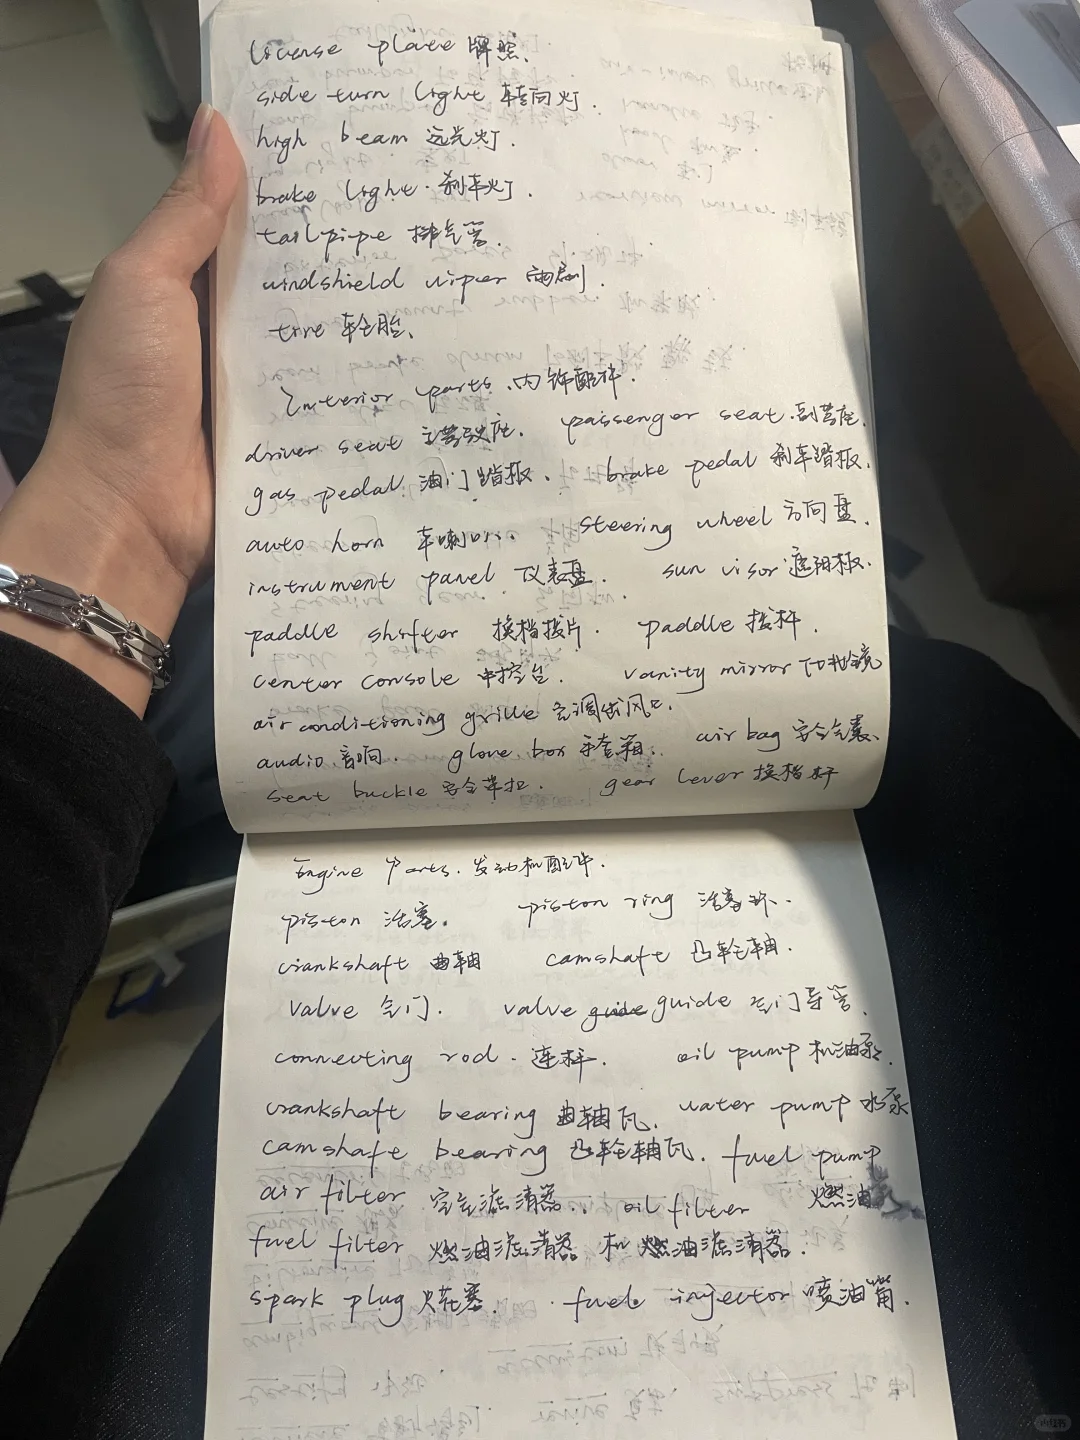 license plate 牌照.
side turn light 转向灯.
high beam 远光灯.
brake light. 刹车灯.
tailpipe 排气管.
windshield wiper 雨刷.
tire 轮胎.
Interior parts. 内饰配件.
driver seat 主驾驶座. passenger seat. 副驾座.
gas pedal 油门踏板. brake pedal 刹车踏板.
auto horn 车喇叭. steering wheel 方向盘.
instrument panel 仪表盘. sun visor 遮阳板.
paddle shifter 换档拨片. paddle 拨杆.
center console 中控台. vanity mirror 化妆镜
air conditioning grille 空调出风口.
audio 音响. glove box 手套箱. air bag 安全气囊.
seat buckle 安全带扣. gear lever 换档杆
Engine parts. 发动机配件.
piston 活塞. piston ring 活塞环.
crankshaft 曲轴 camshaft 凸轮轴.
valve 气门. valve guide guide 气门导管.
connecting rod. 连杆. oil pump 机油泵.
crankshaft bearing 曲轴瓦. water pump 水泵
camshaft bearing 凸轮轴瓦. fuel pump
air filter 空气滤清器.. oil filter 燃油
fuel filter 燃油滤清器 机燃油滤清器.
spark plug 火花塞. fuel injector 喷油嘴.